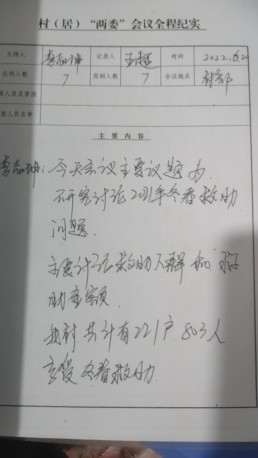 村（居）“两委”会议全程纪实
主持人 李志坤 记录人 王超 时间 2022.6.2
应到人数 7 实到人数 7 会议地点 村部
席人员及原因
席人员名单
主 要 内 容
李志坤：今天会议主要议题为
研究讨论2021年冬春救助
问题.
主要讨论救助人群和
助金额.
我村共计有221户803人
享受冬春救助.